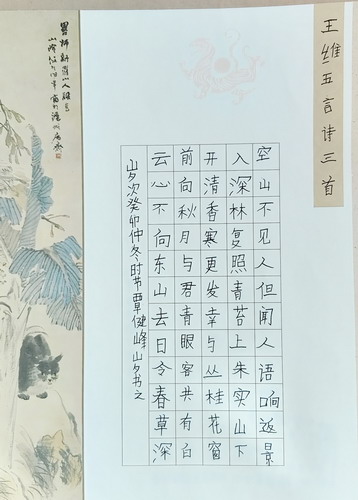 王维五言诗三首
空山不见人但闻人语响返景
入深林复照青苔上朱实山下
开清香寒更发幸与丛桂花窗
前向秋月与君青眼客共有白
云心不向东山去日令春草深
岁次癸卯仲冬时节覃健峰岁书之
新罗山人